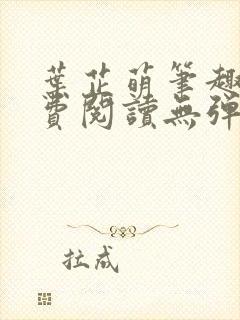 葉芷萌筆趣
費閱讀無彈
拉成